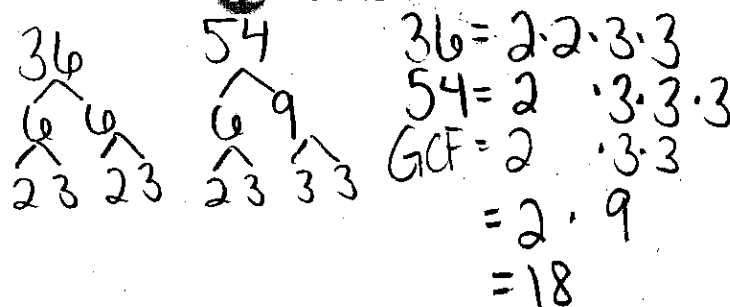 36
6 6
2 3 2 3
54
6 9
2 3 3 3
36 = 2·2·3·3
54 = 2 ·3·3·3
GCF = 2 ·3·3
= 2 · 9
= 18